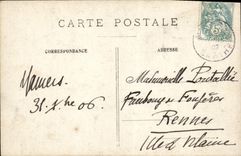 CARTE POSTALE
CORRESPONDANCE
ADRESSE
Mamers
31. Xbre 06.
Mademoiselle
Faubourg de Fougères
Rennes
Ille et Vilaine